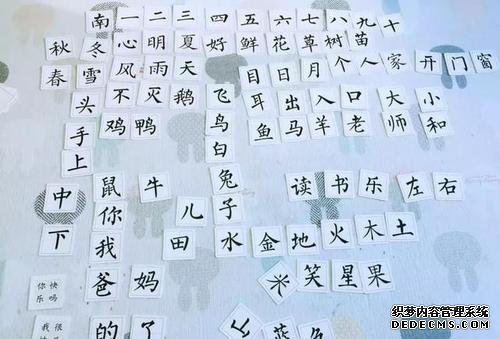 南一二三四五六七八九十
秋冬心明夏好鲜花草树苗
春雪风雨天目日月个人家开门窗
头不灭鹅飞耳出入口大小
手鸡鸭鸟鱼马羊老师和
上白
中鼠牛兔读书乐左右
你儿子
下我田水金地火木土
爸妈米笑星果
你快
乐吗
我很
的了蓝色
织梦内容管理系统
DEDECMS.COM